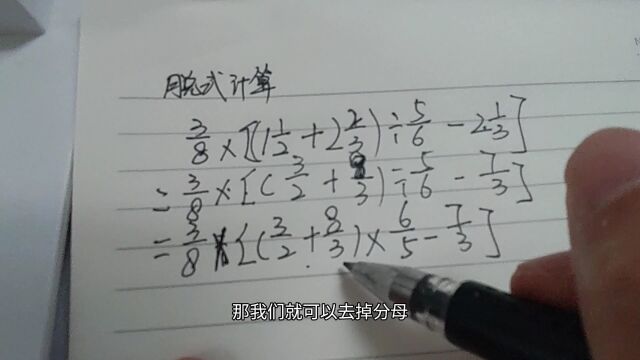 脱式计算
3/8×[(1 1/2+2 2/3)÷5/6-2 1/3]
=3/8×[(3/2+8/3)÷5/6-7/3]
=3/8×[(3/2+8/3)×6/5-7/3]
那我们就可以去掉分母